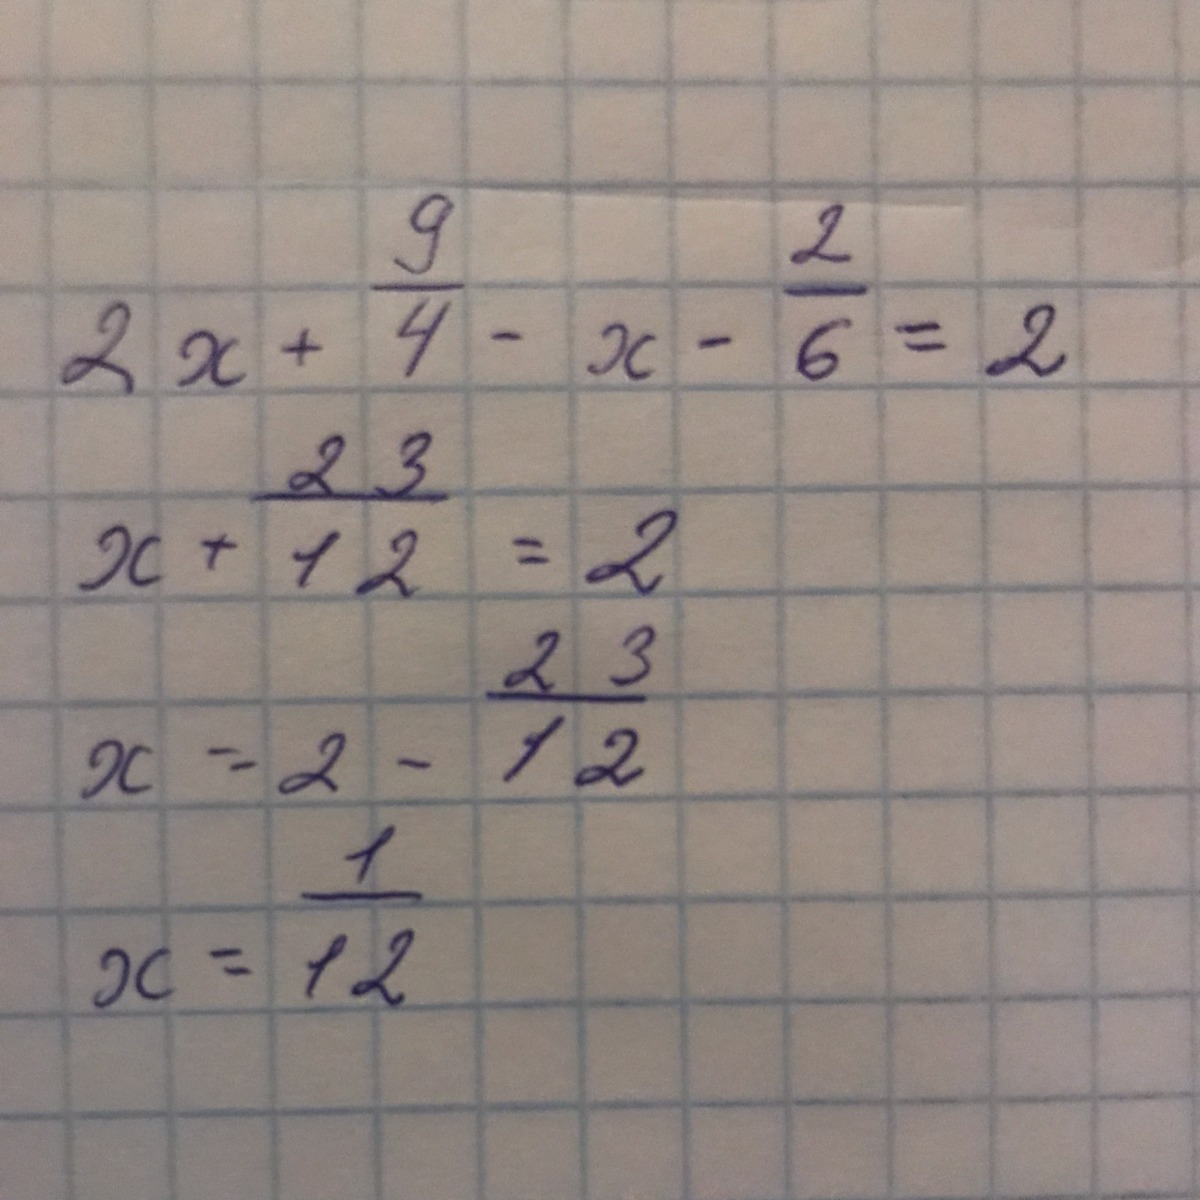 2x + 9/4 - x - 2/6 = 2
x + 23/12 = 2
x = 2 - 23/12
x = 1/12